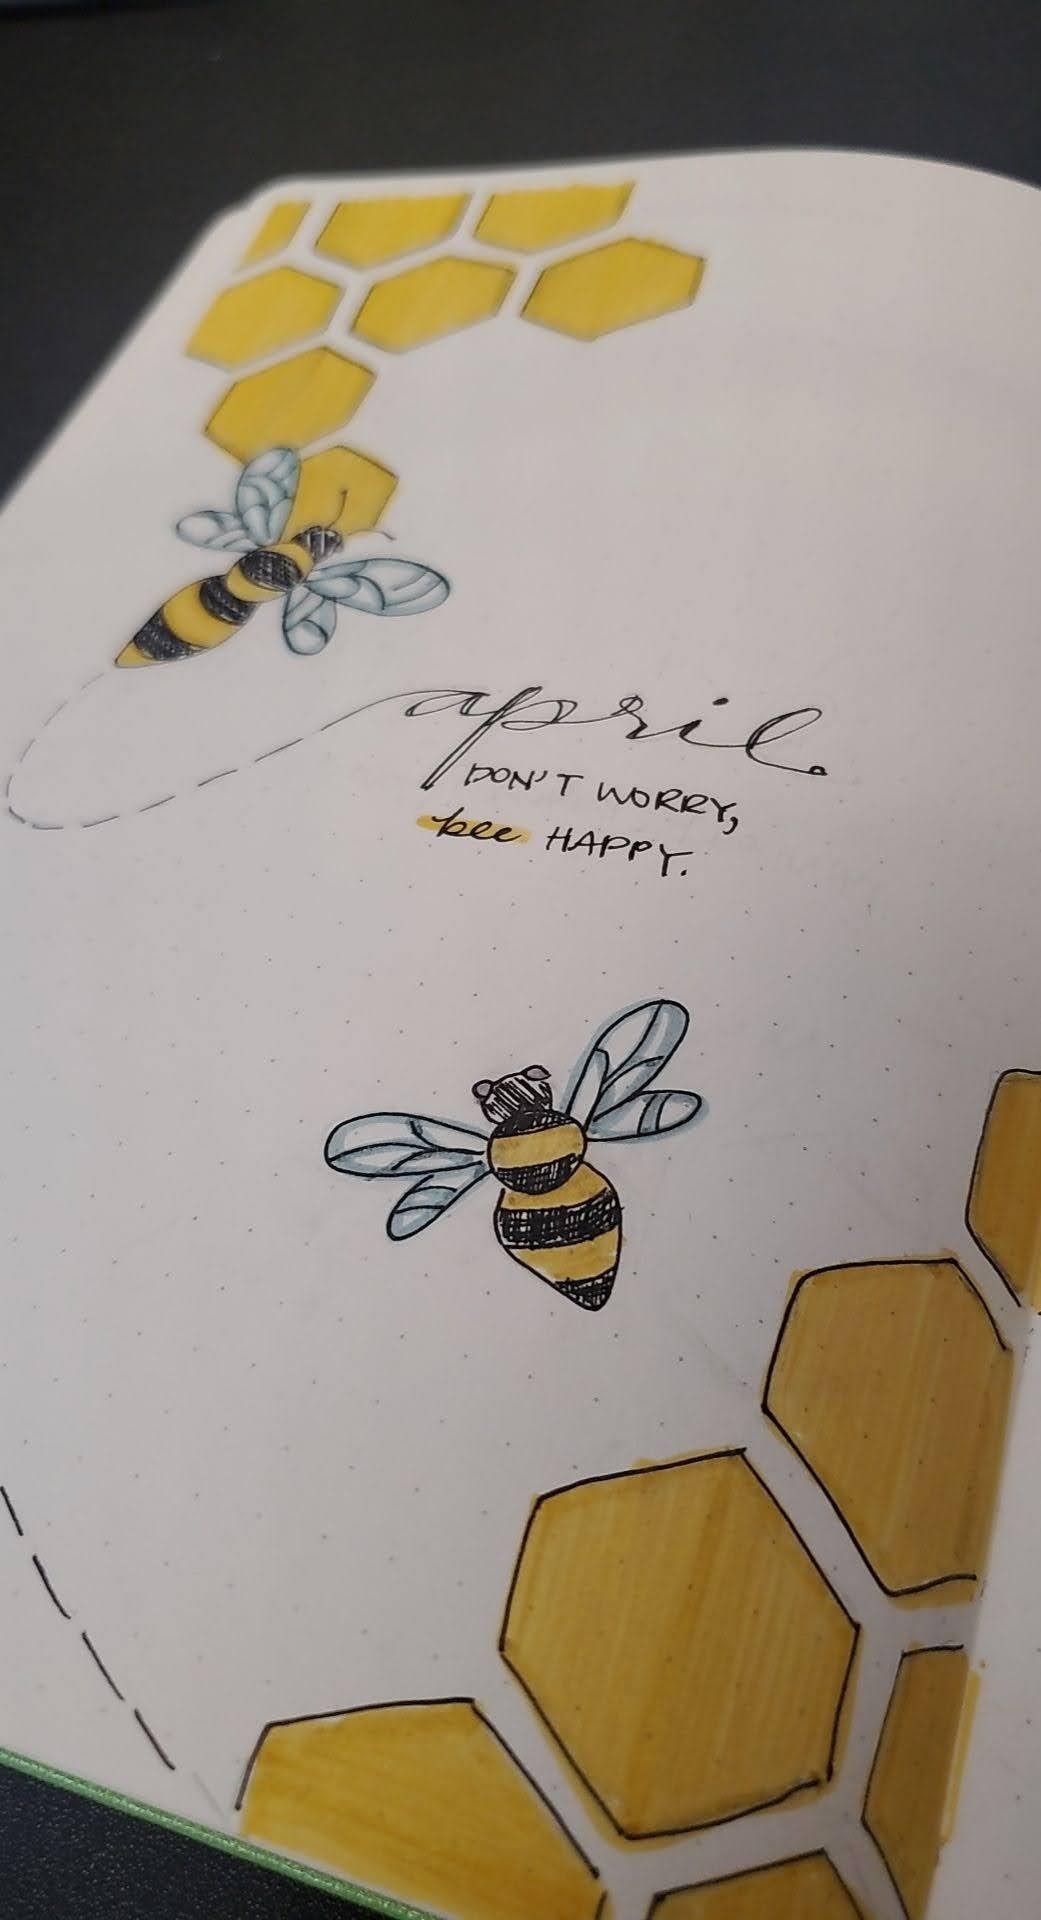 april
DON'T WORRY,
bee HAPPY.